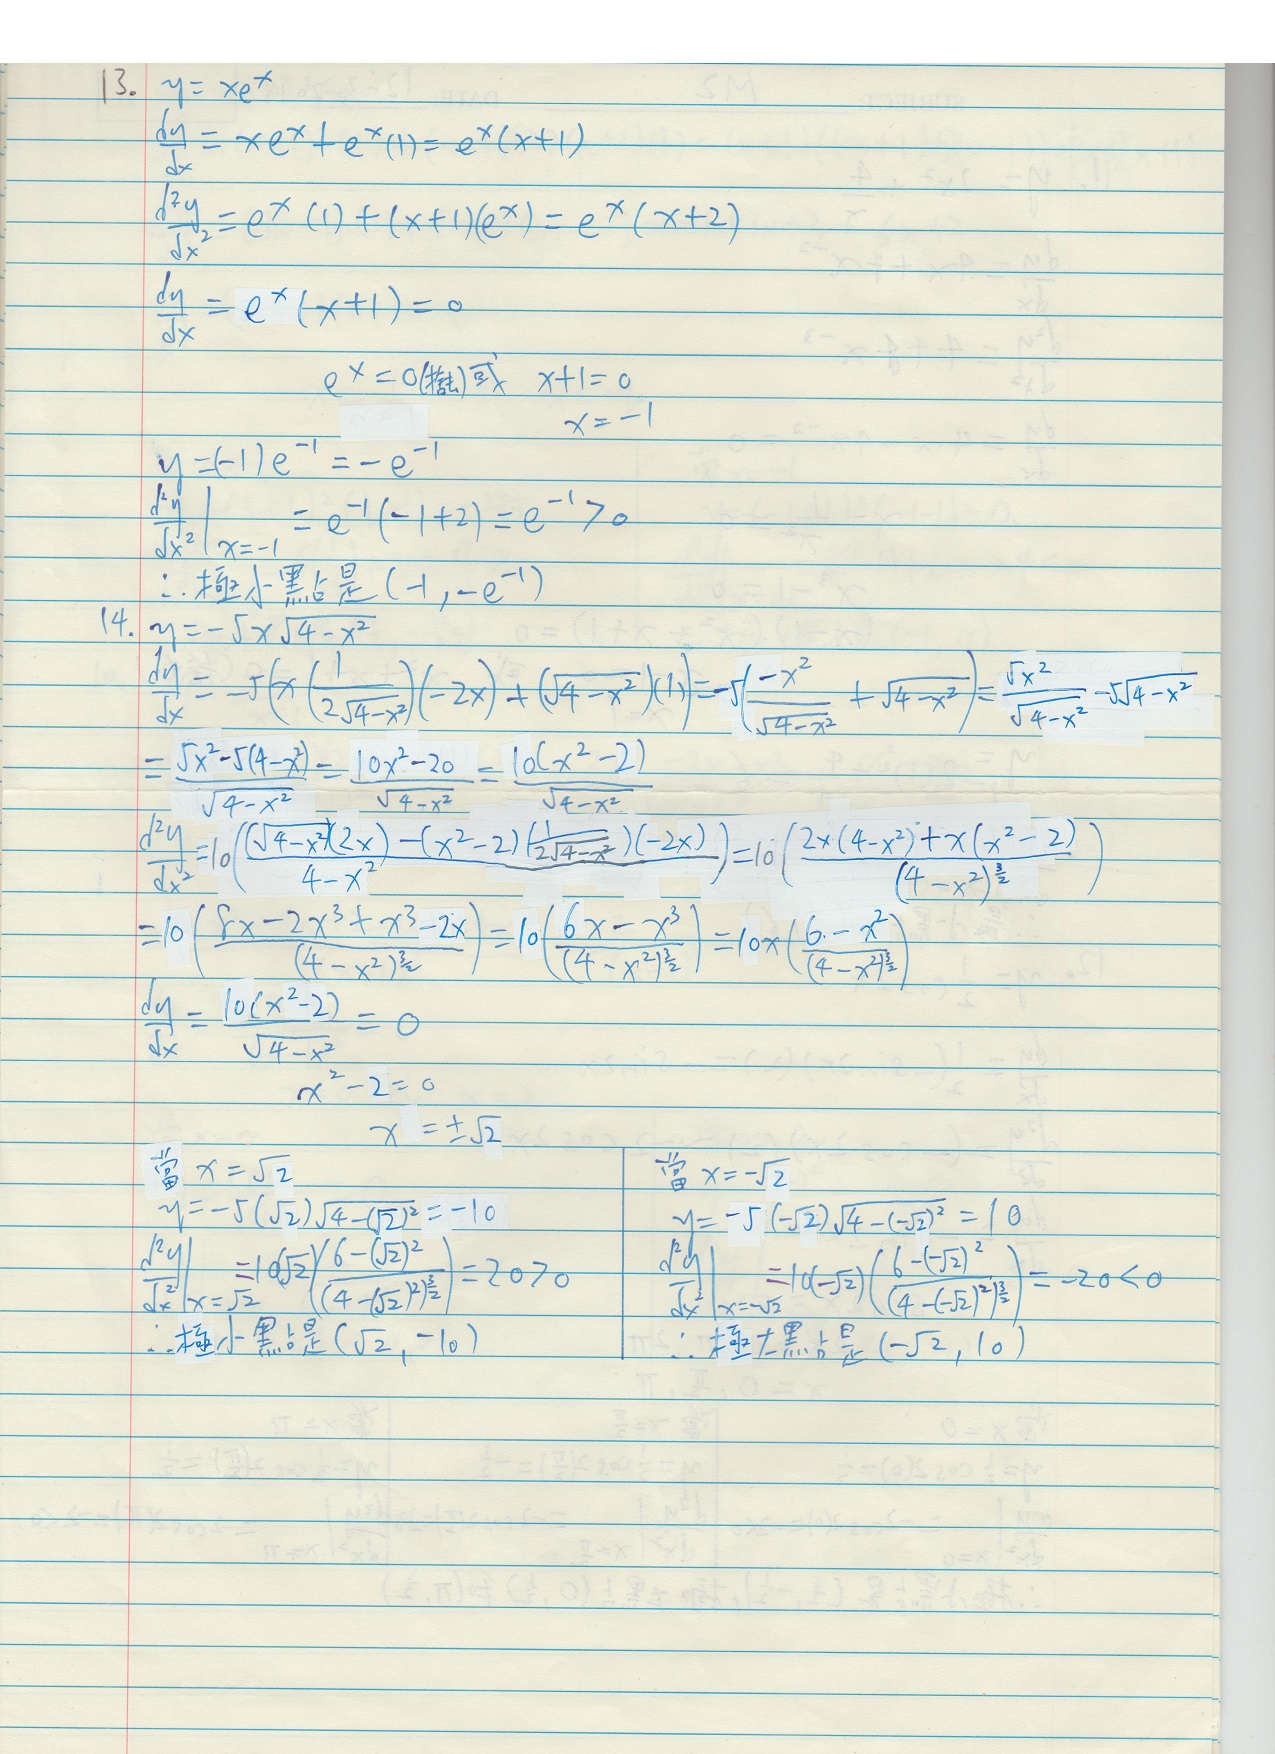 13. y = xeˣ
dy/dx = xeˣ + eˣ(1) = eˣ(x+1)
d²y/dx² = eˣ(1) + (x+1)(eˣ) = eˣ(x+2)
dy/dx = eˣ(x+1) = 0
eˣ = 0(捨去)或 x+1 = 0
x = -1
y = (-1)e⁻¹ = -e⁻¹
d²y/dx²|x=-1 = e⁻¹(-1+2) = e⁻¹ > 0
∴極小點是(-1, -e⁻¹)
14. y = -5x√(4-x²)
dy/dx = -5(x(1/(2√(4-x²)))(-2x) + (√(4-x²))(1)) = -5(-x²/√(4-x²) + √(4-x²)) = 5x²/√(4-x²) - 5√(4-x²)
= (5x²-5(4-x²))/√(4-x²) = (10x²-20)/√(4-x²) = 10(x²-2)/√(4-x²)
d²y/dx² = 10(((√(4-x²))(2x) - (x²-2)(1/(2√(4-x²)))(-2x))/(4-x²)) = 10((2x(4-x²)+x(x²-2))/(4-x²)^(3/2))
= 10((8x-2x³+x³-2x)/(4-x²)^(3/2)) = 10((6x-x³)/(4-x²)^(3/2)) = 10x((6-x²)/(4-x²)^(3/2))
dy/dx = 10(x²-2)/√(4-x²) = 0
x²-2 = 0
x = ±√2
當 x = √2
y = -5(√2)√(4-(√2)²) = -10
d²y/dx²|x=√2 = 10(√2)((6-(√2)²)/(4-(√2)²)^(3/2)) = 20 > 0
∴極小點是(√2, -10)
當 x = -√2
y = -5(-√2)√(4-(-√2)²) = 10
d²y/dx²|x=-√2 = 10(-√2)((6-(-√2)²)/(4-(-√2)²)^(3/2)) = -20 < 0
∴極大點是(-√2, 10)